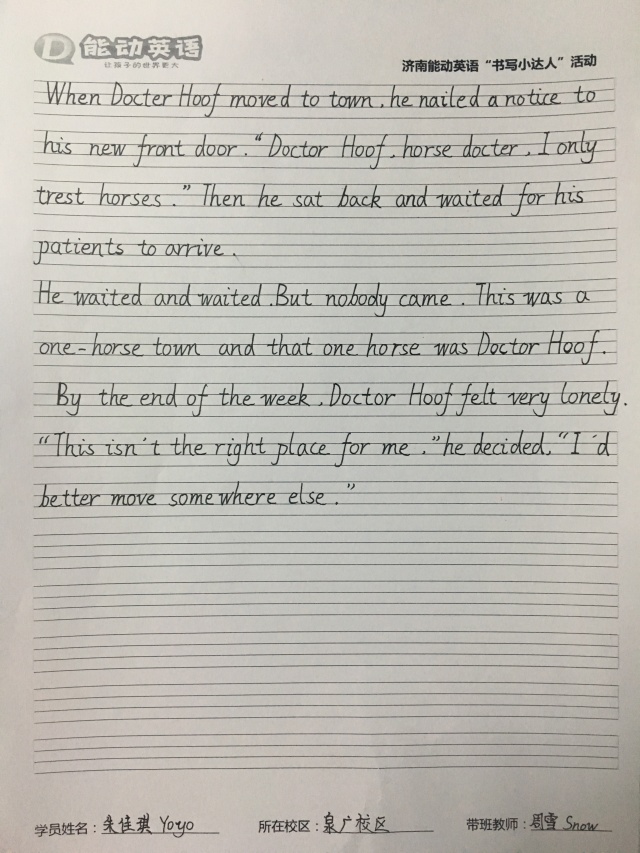 能动英语
让孩子的世界更大
济南能动英语“书写小达人”活动
When Docter Hoof moved to town, he nailed a notice to
his new front door. “Doctor Hoof, horse docter, I only
trest horses.” Then he sat back and waited for his
patients to arrive.
He waited and waited. But nobody came. This was a
one-horse town and that one horse was Doctor Hoof.
By the end of the week, Doctor Hoof felt very lonely.
“This isn't the right place for me.” he decided, “I'd
better move somewhere else.”
学员姓名: 朱佳琪 Yoyo 所在校区: 泉广校区 带班教师: 周雪 Snow